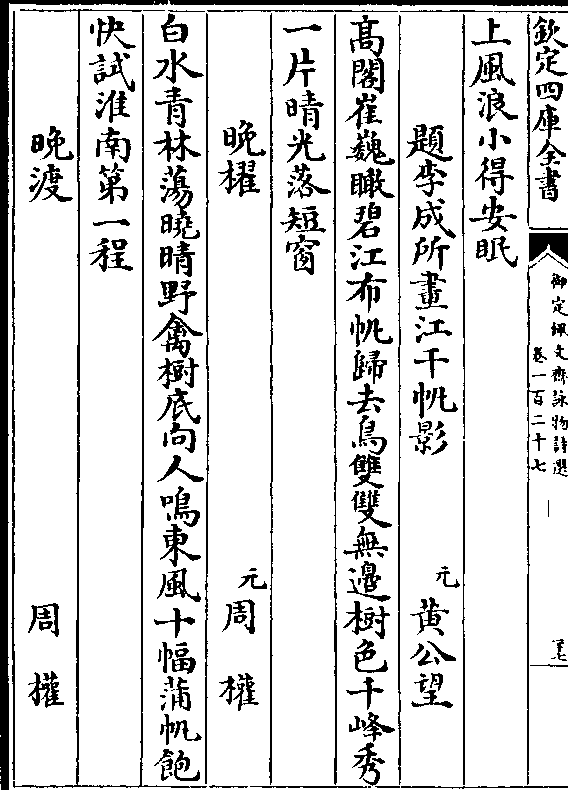 欽定四庫全書
御定佩文齋詠物詩選
卷一百二十七
上風浪小得安眠
題李成所畫江干帆影 元 黃公望
高閣崔巍瞰碧江布帆歸去鳥雙雙無邉樹色千峰秀
一片晴光落短窗
晚櫂 元 周權
白水青林蕩曉晴野禽樹底向人鳴東風十幅蒲帆飽
快試淮南第一程
晚渡 周權